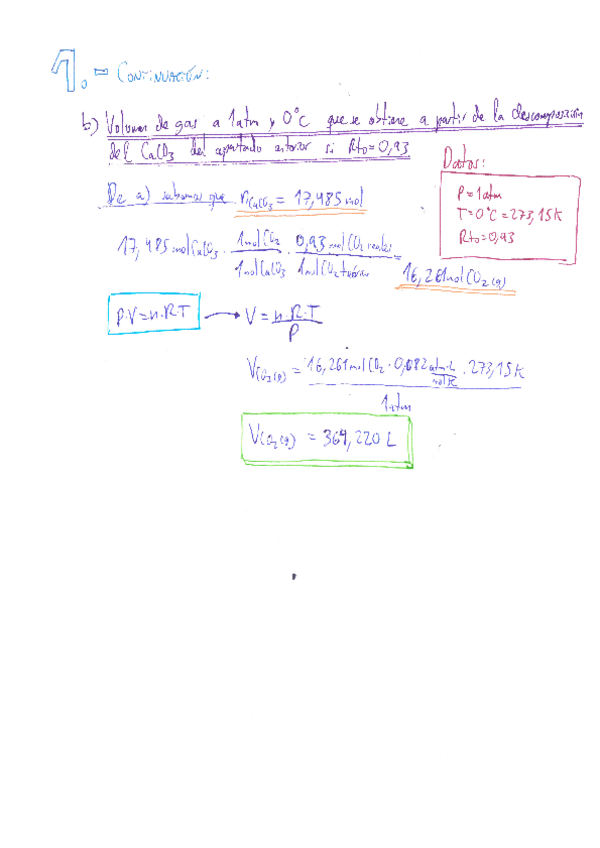 1.- CONTINUACIÓN:
b) Volumen de gas a 1atm y 0°C que se obtiene a partir de la descomposición
del CaCO3 del apartado anterior si Rto=0,93
Datos:
P=1atm
T=0°C=273,15K
Rto=0,93
De a) sabemos que nCaCO3 = 17,485mol
17,485molCaCO3 · 1molCO2/1molCaCO3 · 0,93molCO2reales/1molCO2teóricos = 16,261molCO2(g)
P·V=n·R·T → V=n·R·T/P
VCO2(g) = 16,261molCO2 · 0,082 atm·L/mol·K · 273,15K / 1atm
VCO2(g) = 364,220 L